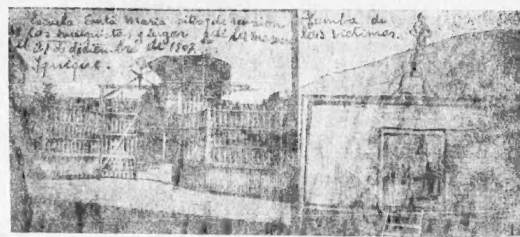 Escuela Santa María sitio de reunion
de los huelguistas y lugar del
el 21 de diciembre de 1907.
Iquique.
Tumba de
las victimas.